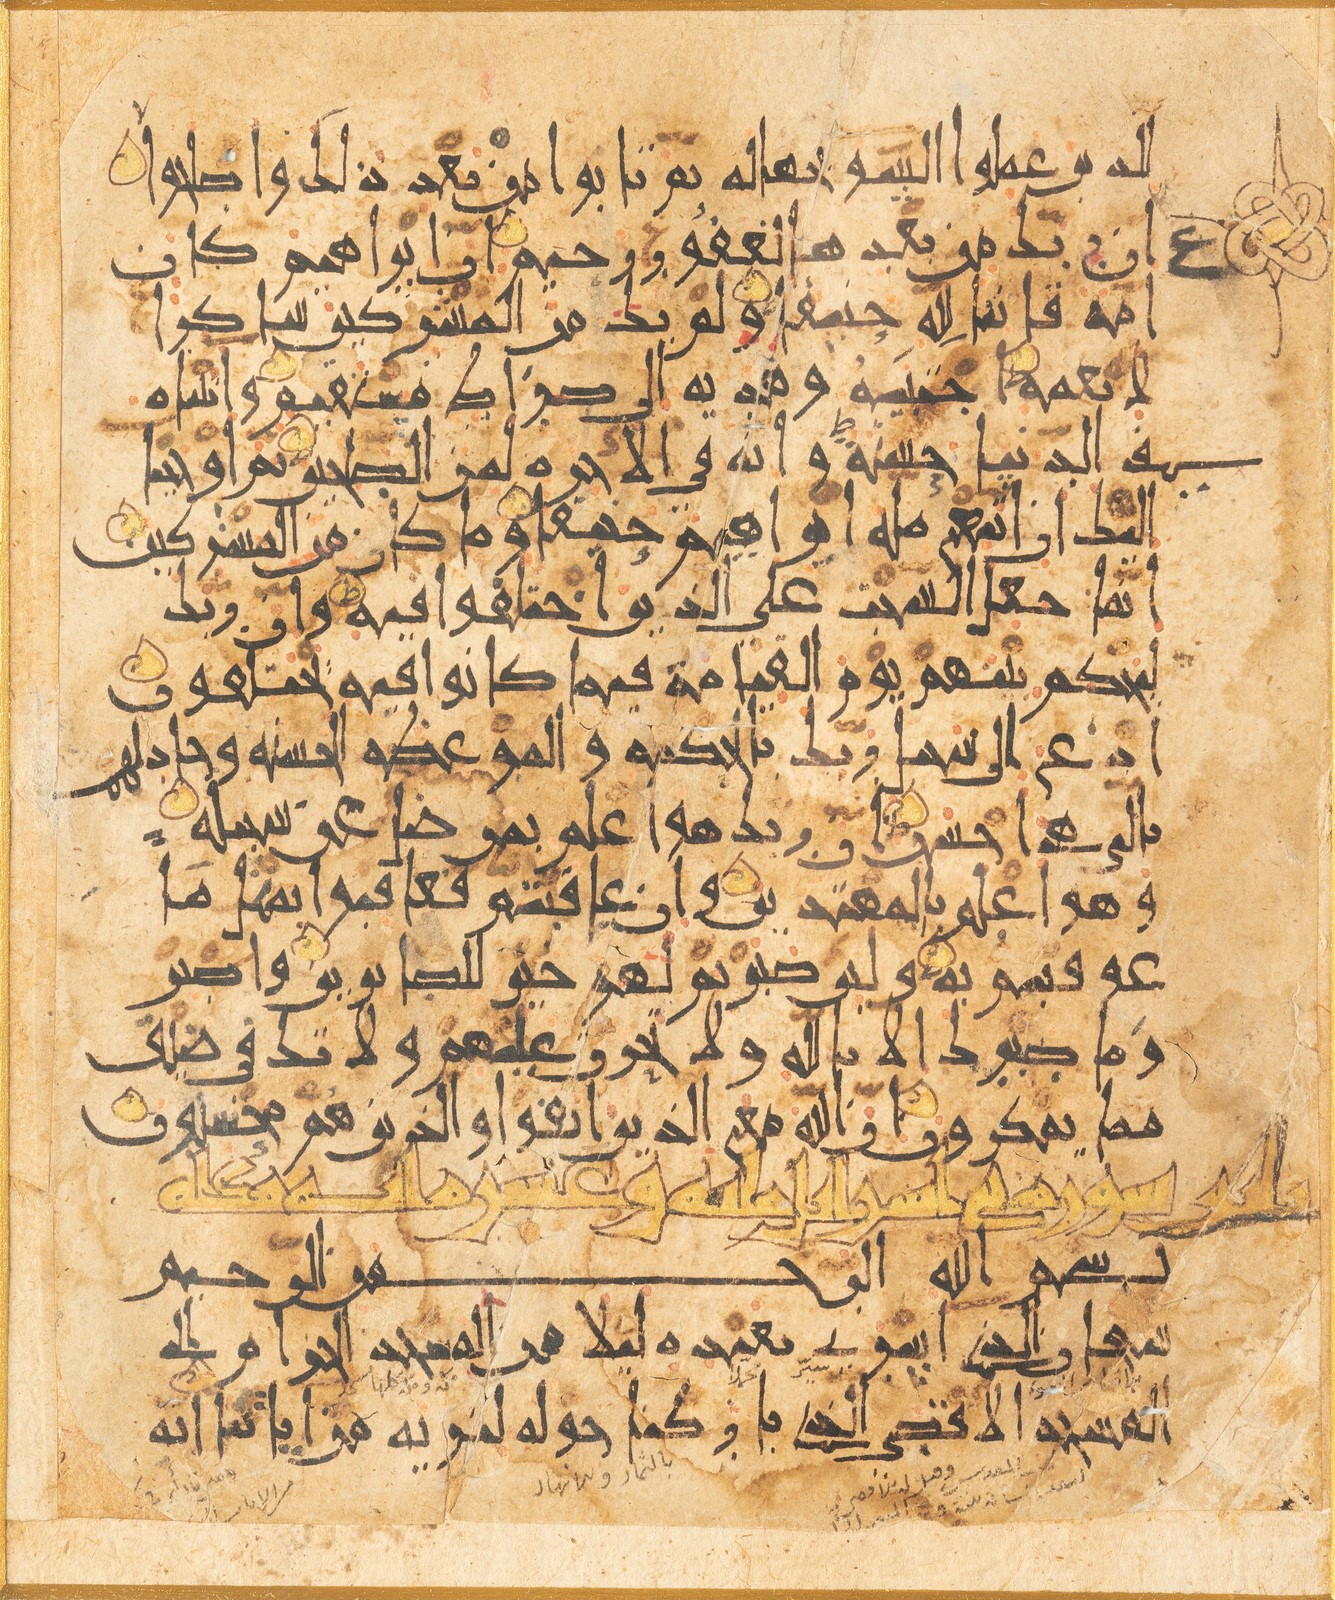 للذين عملوا السوء بجهالة ثم تابوا من بعد ذلك واصلحوا
ان ربك من بعدها لغفور رحيم ان ابراهيم كان
ع
امة قانتا لله حنيفا ولم يك من المشركين شاكرا
لانعمه اجتبيه وهديه الى صراط مستقيم واتيناه
في الدنيا حسنة وانه في الاخرة لمن الصالحين ثم اوحينا
اليك ان اتبع ملة ابراهيم حنيفا وما كان من المشركين
انما جعل السبت على الذين اختلفوا فيه وان ربك
ليحكم بينهم يوم القيامة فيما كانوا فيه يختلفون
ادع الى سبيل ربك بالحكمة والموعظة الحسنة وجادلهم
بالتي هي احسن ان ربك هو اعلم بمن ضل عن سبيله
وهو اعلم بالمهتدين وان عاقبتم فعاقبوا بمثل ما
عوقبتم به ولئن صبرتم لهو خير للصابرين واصبر
وما صبرك الا بالله ولا تحزن عليهم ولا تك في ضيق
مما يمكرون ان الله مع الذين اتقوا والذين هم محسنون
سورة بني اسرائيل مائة وعشر
بسم الله الرحمن الرحيم
سبحان الذي اسرى بعبده ليلا من المسجد الحرام الى
المسجد الاقصى الذي باركنا حوله لنريه من اياتنا انه
بالثمار والانهار